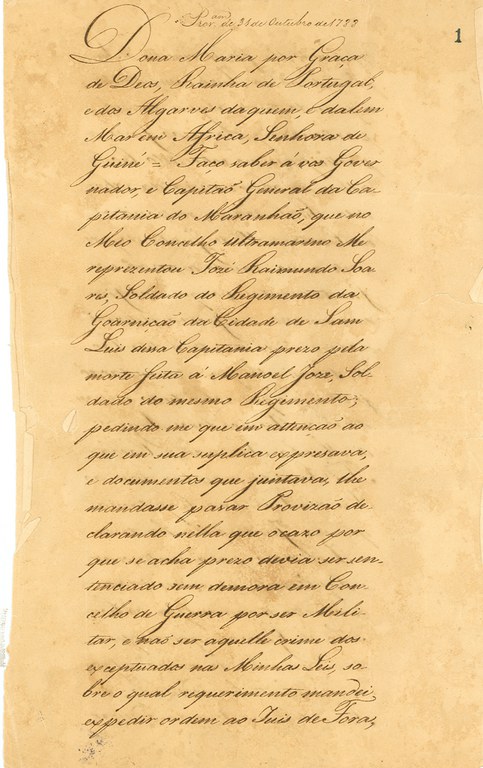 Prov.am de 31 de Outubro de 1788
1
Dona Maria por Graça
de Deos, Rainha de Portugal,
e dos Algarves daquem, e dalem
Mar em Africa, Senhora de
Guiné = Faço saber a vos Gover
nador, e Capitaõ General da Ca-
pitania do Maranhaõ, que no
Meo Concelho Ultramarino Me
reprezentou Jozé Raimundo Soa
res, Soldado do Regimento da
Goarnicaõ da Cidade de Sam
Luis dessa Capitania prezo pela
morte feita á Manoel Joze, Sol-
dado do mesmo Regimento;
pedindo me que em attencaõ ao
que em sua suplica expresava,
e documentos que juntava, lhe
mandasse pasar Provizaõ de-
clarando nella que o cazo por
que se acha prezo devia ser sen-
tenciado sem demora em Con-
celho de Guerra por ser Meli-
tar, e naõ ser aquelle crime dos
exceptuados nas Minhas Leis, so-
bre o qual requerimento mandei
expedir ordem ao Juis de Fora,